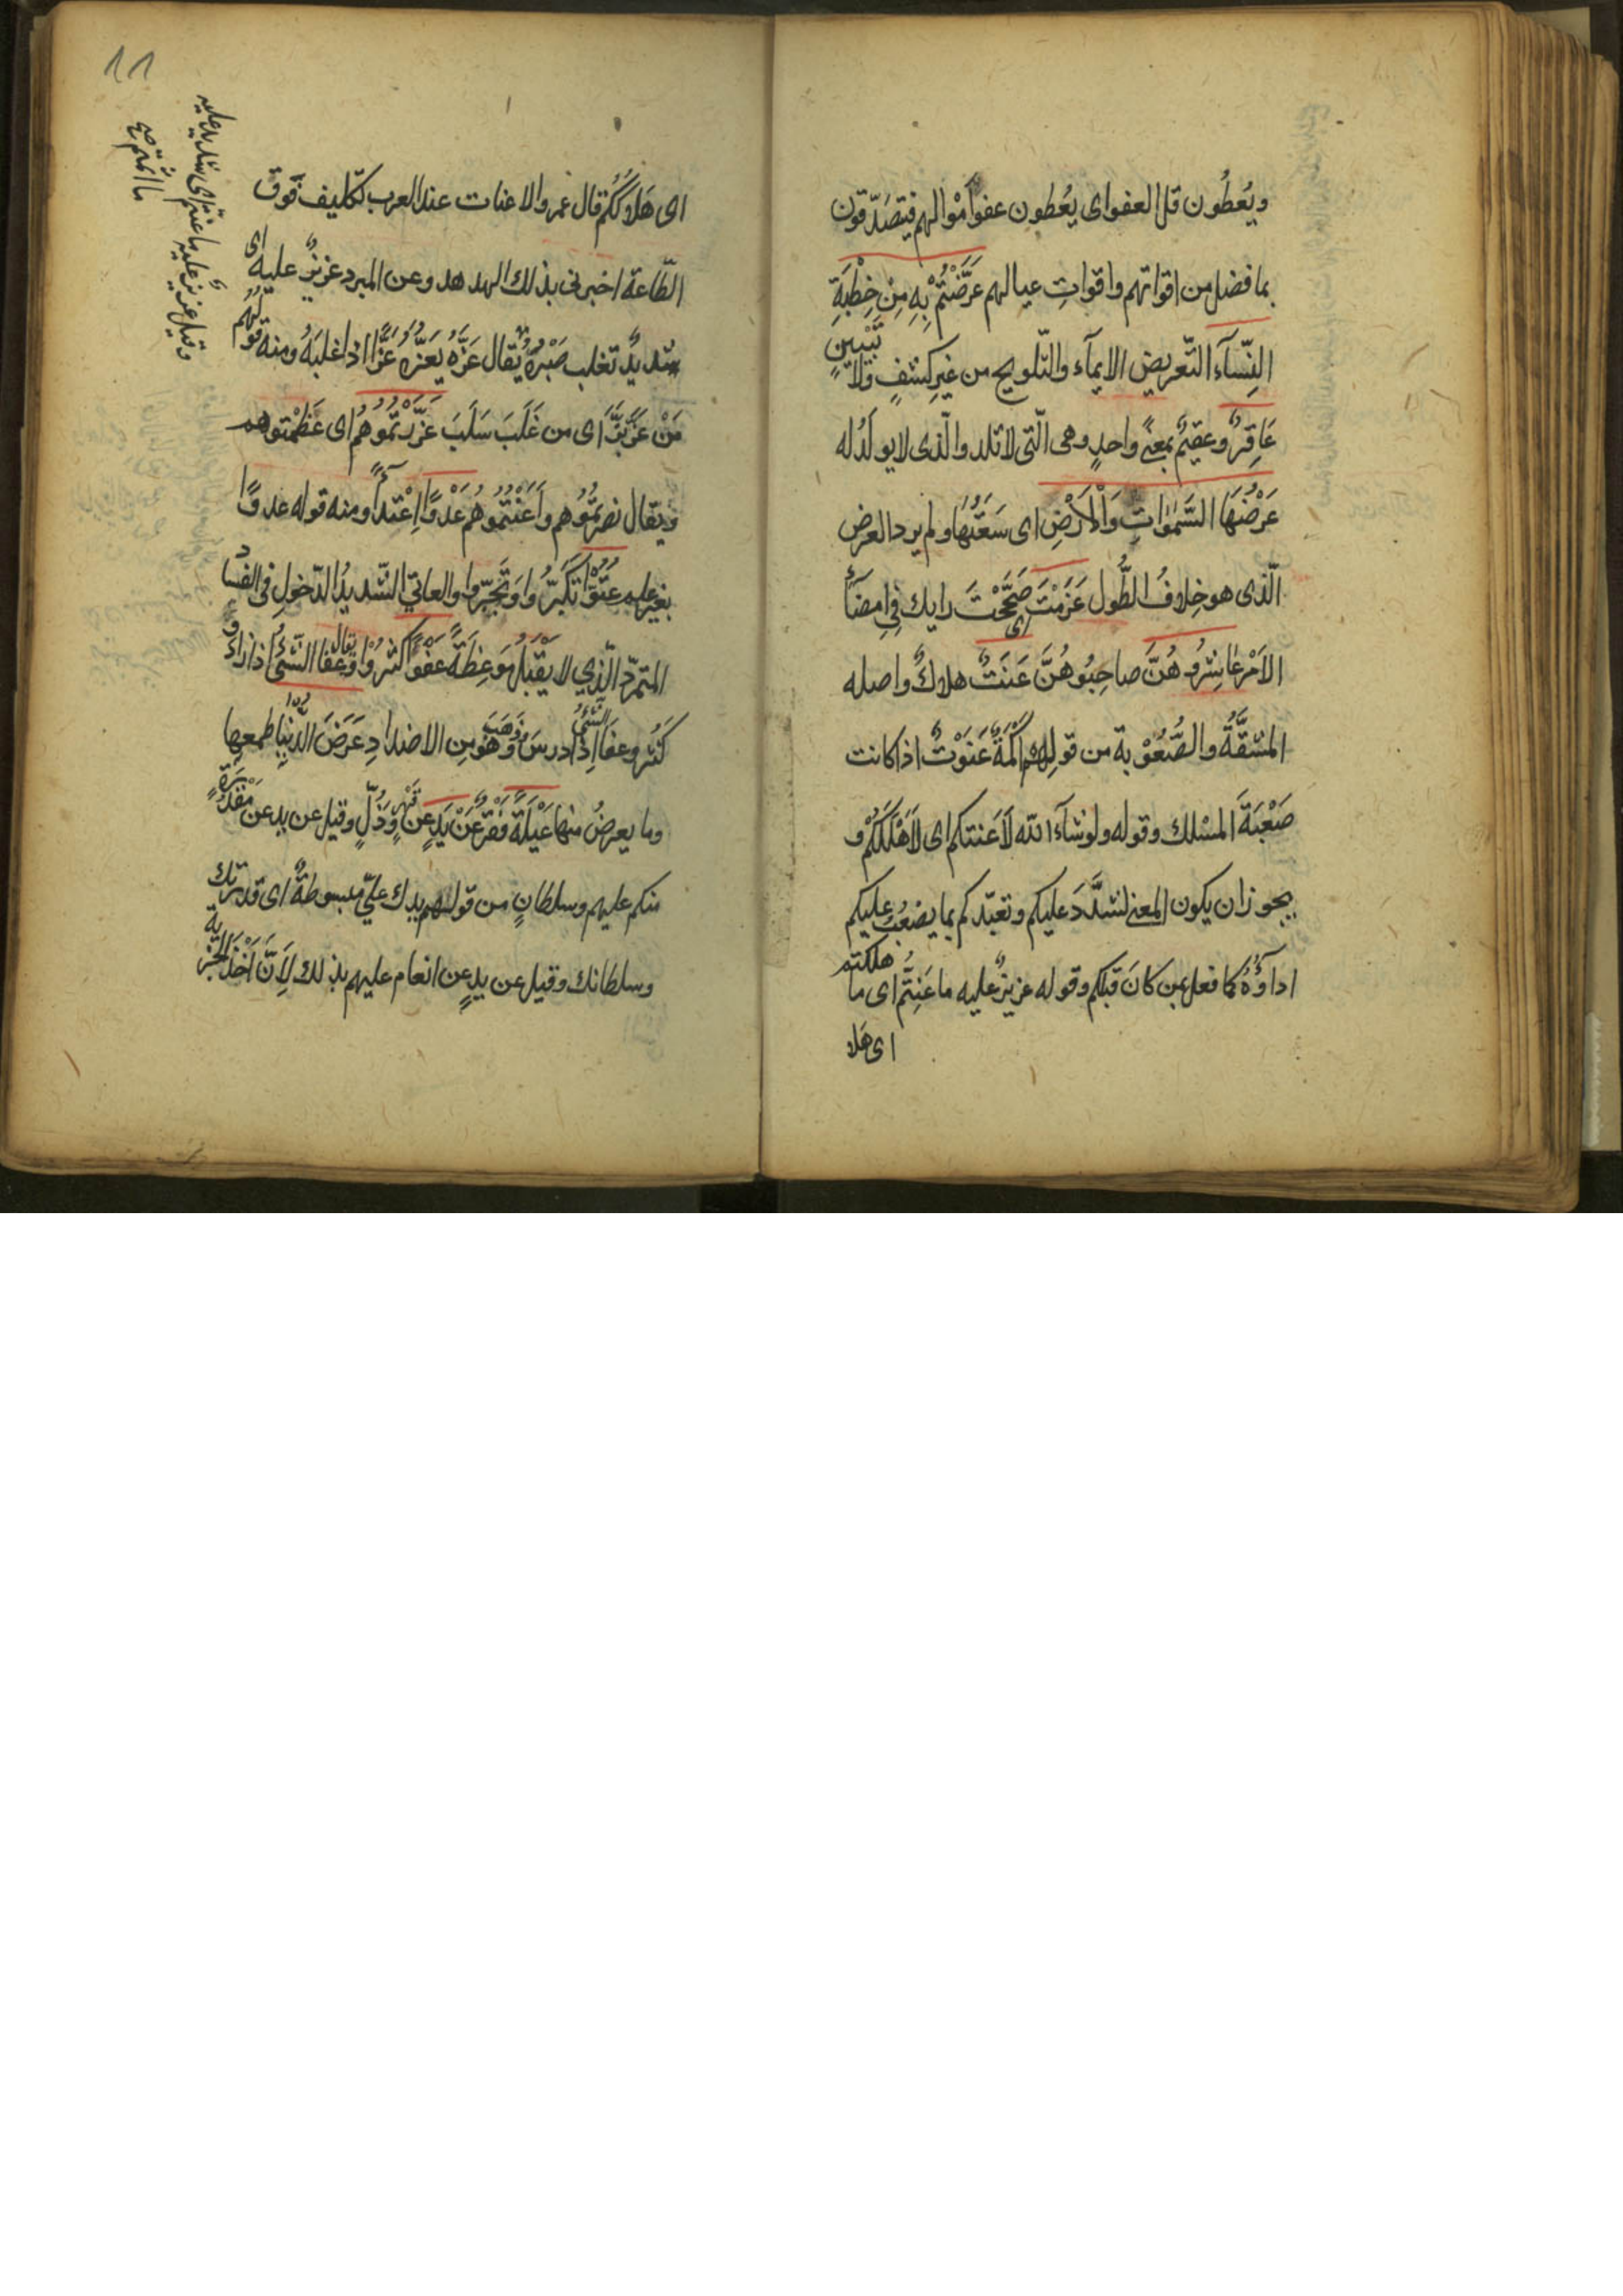 ويُعْطُون قل العفو اى يُعْطون عفوَ اَمْوالهم فيَتَصَدّقون
بما فضل من اقواتهم واقواتِ عيالهم عَرَّضْتُمْ بِهِ مِنْ خِطْبَةِ
النِّسَآءِ التّعريض الايمآء والتّلويح من غَيرِ كشفٍ ولا تَبْيينٍ
عَاقِرٌ وعقيمٌ بمعنًى واحدٍ وهى الّتى لا تلد والّذى لا يولَدُ له
عَرْضُهَا السَّمٰوٰاتِ وَالْاَرْضِ اى سَعَتُهَا ولم يرد العرض
الّذى هو خِلافُ الطُّول عَزَمْتَ صَحَّحْتَ رايك فِى امضآءِ
الاَمْرِ عَاشِرُوهُنَّ صاحِبُوهُنَّ عَنَتٌ هلاكٌ واصله
المشَقَّةُ والصُّعُوْبة من قولهم اَكَمَةٌ عَنَوْتٌ اذا كانت
صَعْبَةَ المسْلك وقوله ولو شآء الله لَاَعنتكم اى لَاَهْلَكَكُمْ و
يجوز ان يكون المعنى لشدَّدَ عليكم وتعبّدكم بما يصْعُبُ عليكم
اداؤُهُ كما فعل بمن كانَ قبلكم وقوله عزيزٌ عليه ما عَنِتُّم اى ما هلكتم
اى هَلا
11
اى هَلاكُكُم قال عمر والاعنات عند العرب تكليف فَوقَ
الطّاعة اخبرنى بذلك الهدهد وعن المبرد عزيزٌ عليه اى
شديدٌ تغلب صَبْرَهُ يُقال عَزَّهُ يَعُزُّهُ عَزًّا اذا غلبَهُ ومنه قولهم
مَنْ عَزَّ بَزَّ اى من غَلَبَ سَلَبَ عَزَّرْتُمُوهُمْ اى عَظَّمْتموهم
ويقال نصرتُمُوهم واَعَنْتُمُوهُمْ عَدْوًا اِعْتِدآءً ومنه قوله عدوًا
بغير علم عَتَوْا تكَبَّرُوا وَتَجَبَّروا والعاتِي الشّديدُ الدّخولِ فى الفسا د
المتمرّد الّذي لا يَقْبَلُ مَوعِظَةً عَفَوْا كَثُرُوا وَيقال عفا الشَّئُ اذا زاد و
كَثُر وعفا الشَّئُ اِذا درسَ وذَهَبَ وَهُوَ مِن الاضدادِ عَرَضَ الدُّنْيا طمعها
وما يعرضُ منها عَيْلَةً فَقْرٌ عَنْ يَدٍ عن قَهْرٍ وَذُلٍّ وقيل عن يد عن مَقْدُرَةٍ
منكم عليهم وسلطانٍ من قولهم يدك علىّ مبسوطةٌ اى قدرتك
وسلطانك وقيل عن يدٍ عن انعام عليهم بذلك لِاَنَّ اَخْذَ الجزية
وقيل عزيزٌ عليه ما عنتم اى شديد عليه
ما اثمتم صح